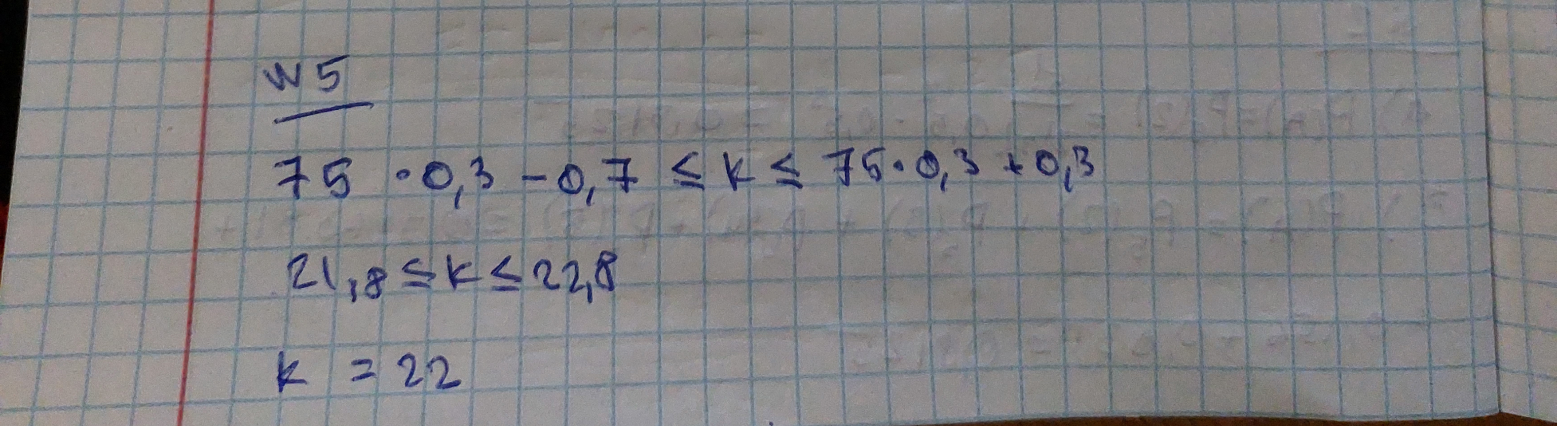 N5
75 · 0,3 - 0,7 ≤ k ≤ 75 · 0,3 + 0,3
21,8 ≤ k ≤ 22,8
k = 22